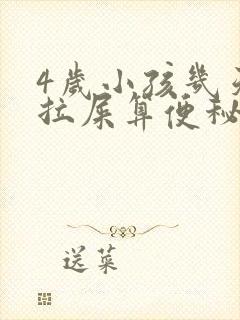 4歲小孩幾天
拉屎算便秘
送菜